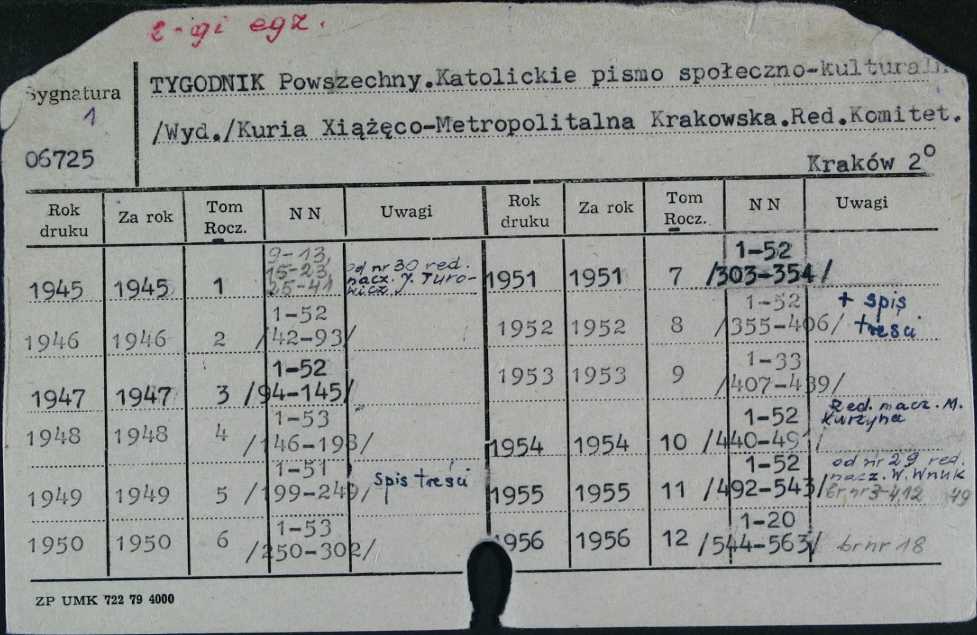 2-gi egz.
Sygnatura
1
06725
TYGODNIK Powszechny.Katolickie pismo społeczno-kulturaln
/Wyd./Kuria Xiążęco-Metropolitalna Krakowska.Red.Komitet.
Kraków 2°
Rok druku Za rok Tom Rocz. NN Uwagi Rok druku Za rok Tom Rocz. NN Uwagi
1945 1945 1 9-13, 15-23, 25-41 od nr 30 red. nacz. J. Turowicz
1946 1946 2 1-52 /42-93/
1947 1947 3 1-52 /94-145/
1948 1948 4 1-53 /146-198/
1949 1949 5 1-51 /199-249/ spis treści
1950 1950 6 1-53 /250-302/
1951 1951 7 1-52 /303-354/
1952 1952 8 1-52 /355-406/ + spis treści
1953 1953 9 1-33 /407-439/
1954 1954 10 1-52 /440-491/ Red. nacz. M. Kurzyna
1955 1955 11 1-52 /492-543/ od nr 29 red. nacz. W. Wnuk
1956 1956 12 1-20 /544-563/ br nr 18
ZP UMK 722 79 4000